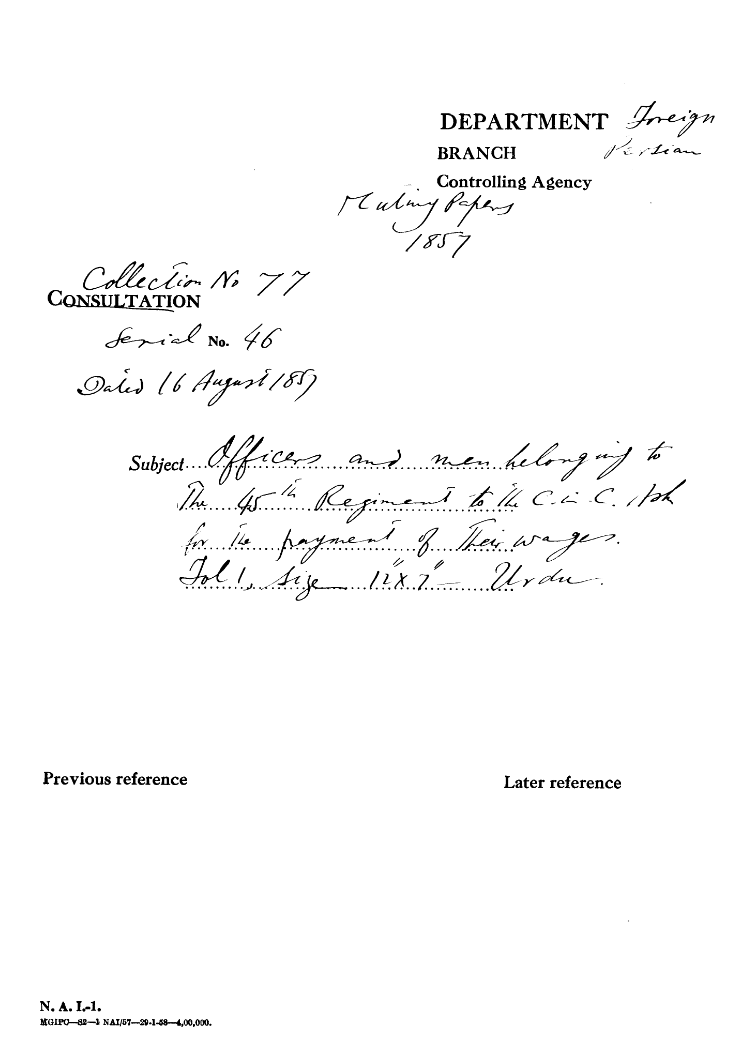 DEPARTMENT Foreign
BRANCH Persian
Controlling Agency
Mutiny Papers
1857
Collection No 77
CONSULTATION
Serial No. 46
Dated 16 August 1857
Subject Officers and men belonging to
The 45th Regiment to the C. in C. Ask
for the payment of Their wages.
Fol 1, Size 12" X 7" — Urdu.
Previous reference
Later reference
N. A. I.-1.
MGIPC—S2—1 NAI/57—29-1-58—4,00,000.